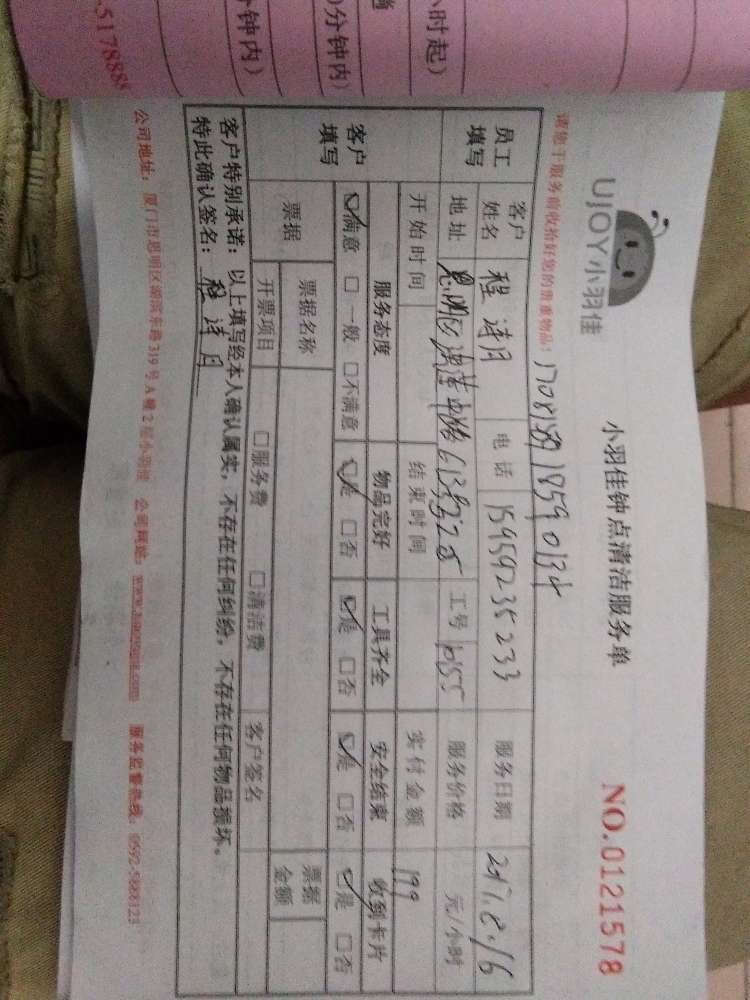 .5178888
分钟内）
0分钟内）
小时起）
UJOY小羽佳
小羽佳钟点清洁服务单
NO.0121578
请您于服务前收拾好您的贵重物品！
员工填写
客户姓名
电话
15959235233
服务日期
地址
工号
服务价格
元/小时
开始时间
结束时间
实付金额
199
客户填写
服务态度
物品完好
工具齐全
安全结束
收到卡片
☑满意 □一般 □不满意
☑是 □否
☑是 □否
☑是 □否
☑是 □否
票据
票据名称
票据金额
开票项目
□服务费 □清洁费
客户签名
客户特别承诺：以上填写经本人确认属实，不存在任何纠纷，不存在任何物品损坏。
特此确认签名：
公司地址：厦门市思明区湖滨东路319号A幢2层小羽佳 公司网址： 服务监督热线：0592-5888123